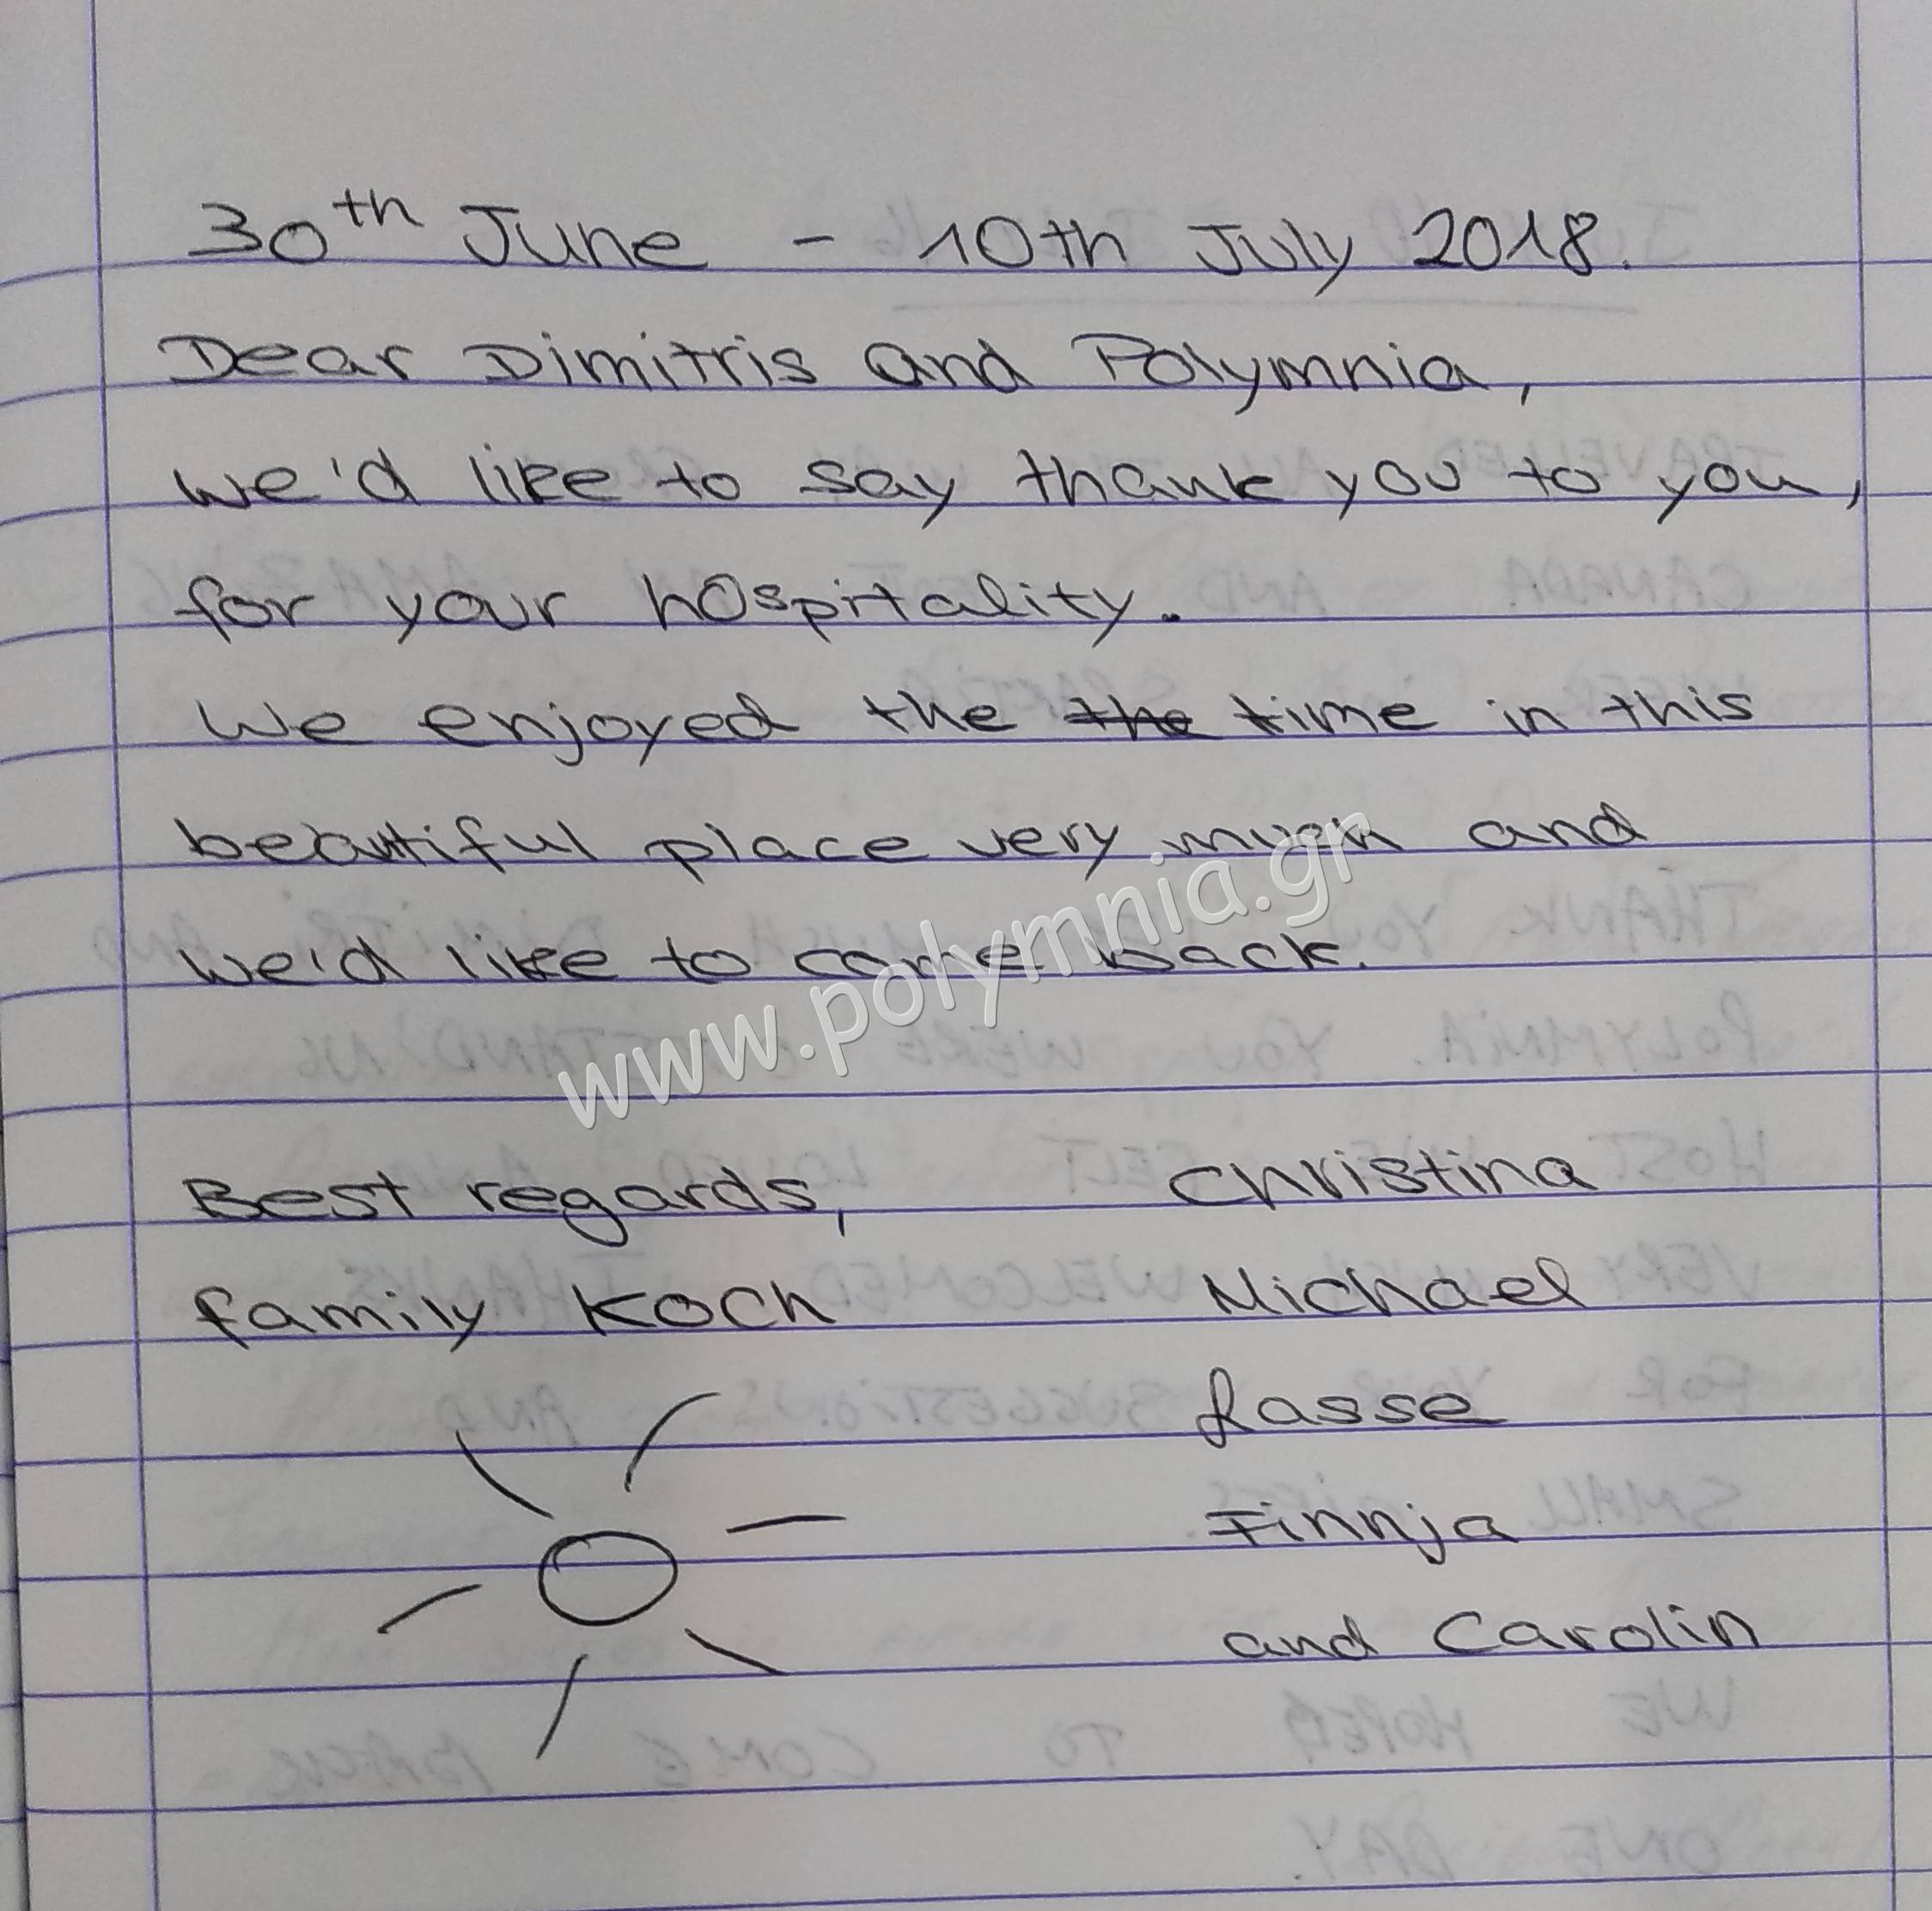 30th June - 10th July 2018.
Dear Dimitris and Polymnia,
we'd like to say thank you to you,
for your hospitality.
We enjoyed the the time in this
beautiful place very much and
we'd like to come back.
www.polymnia.gr
Best regards,
family Koch
Christina
Michael
Lasse
Finnja
and Carolin